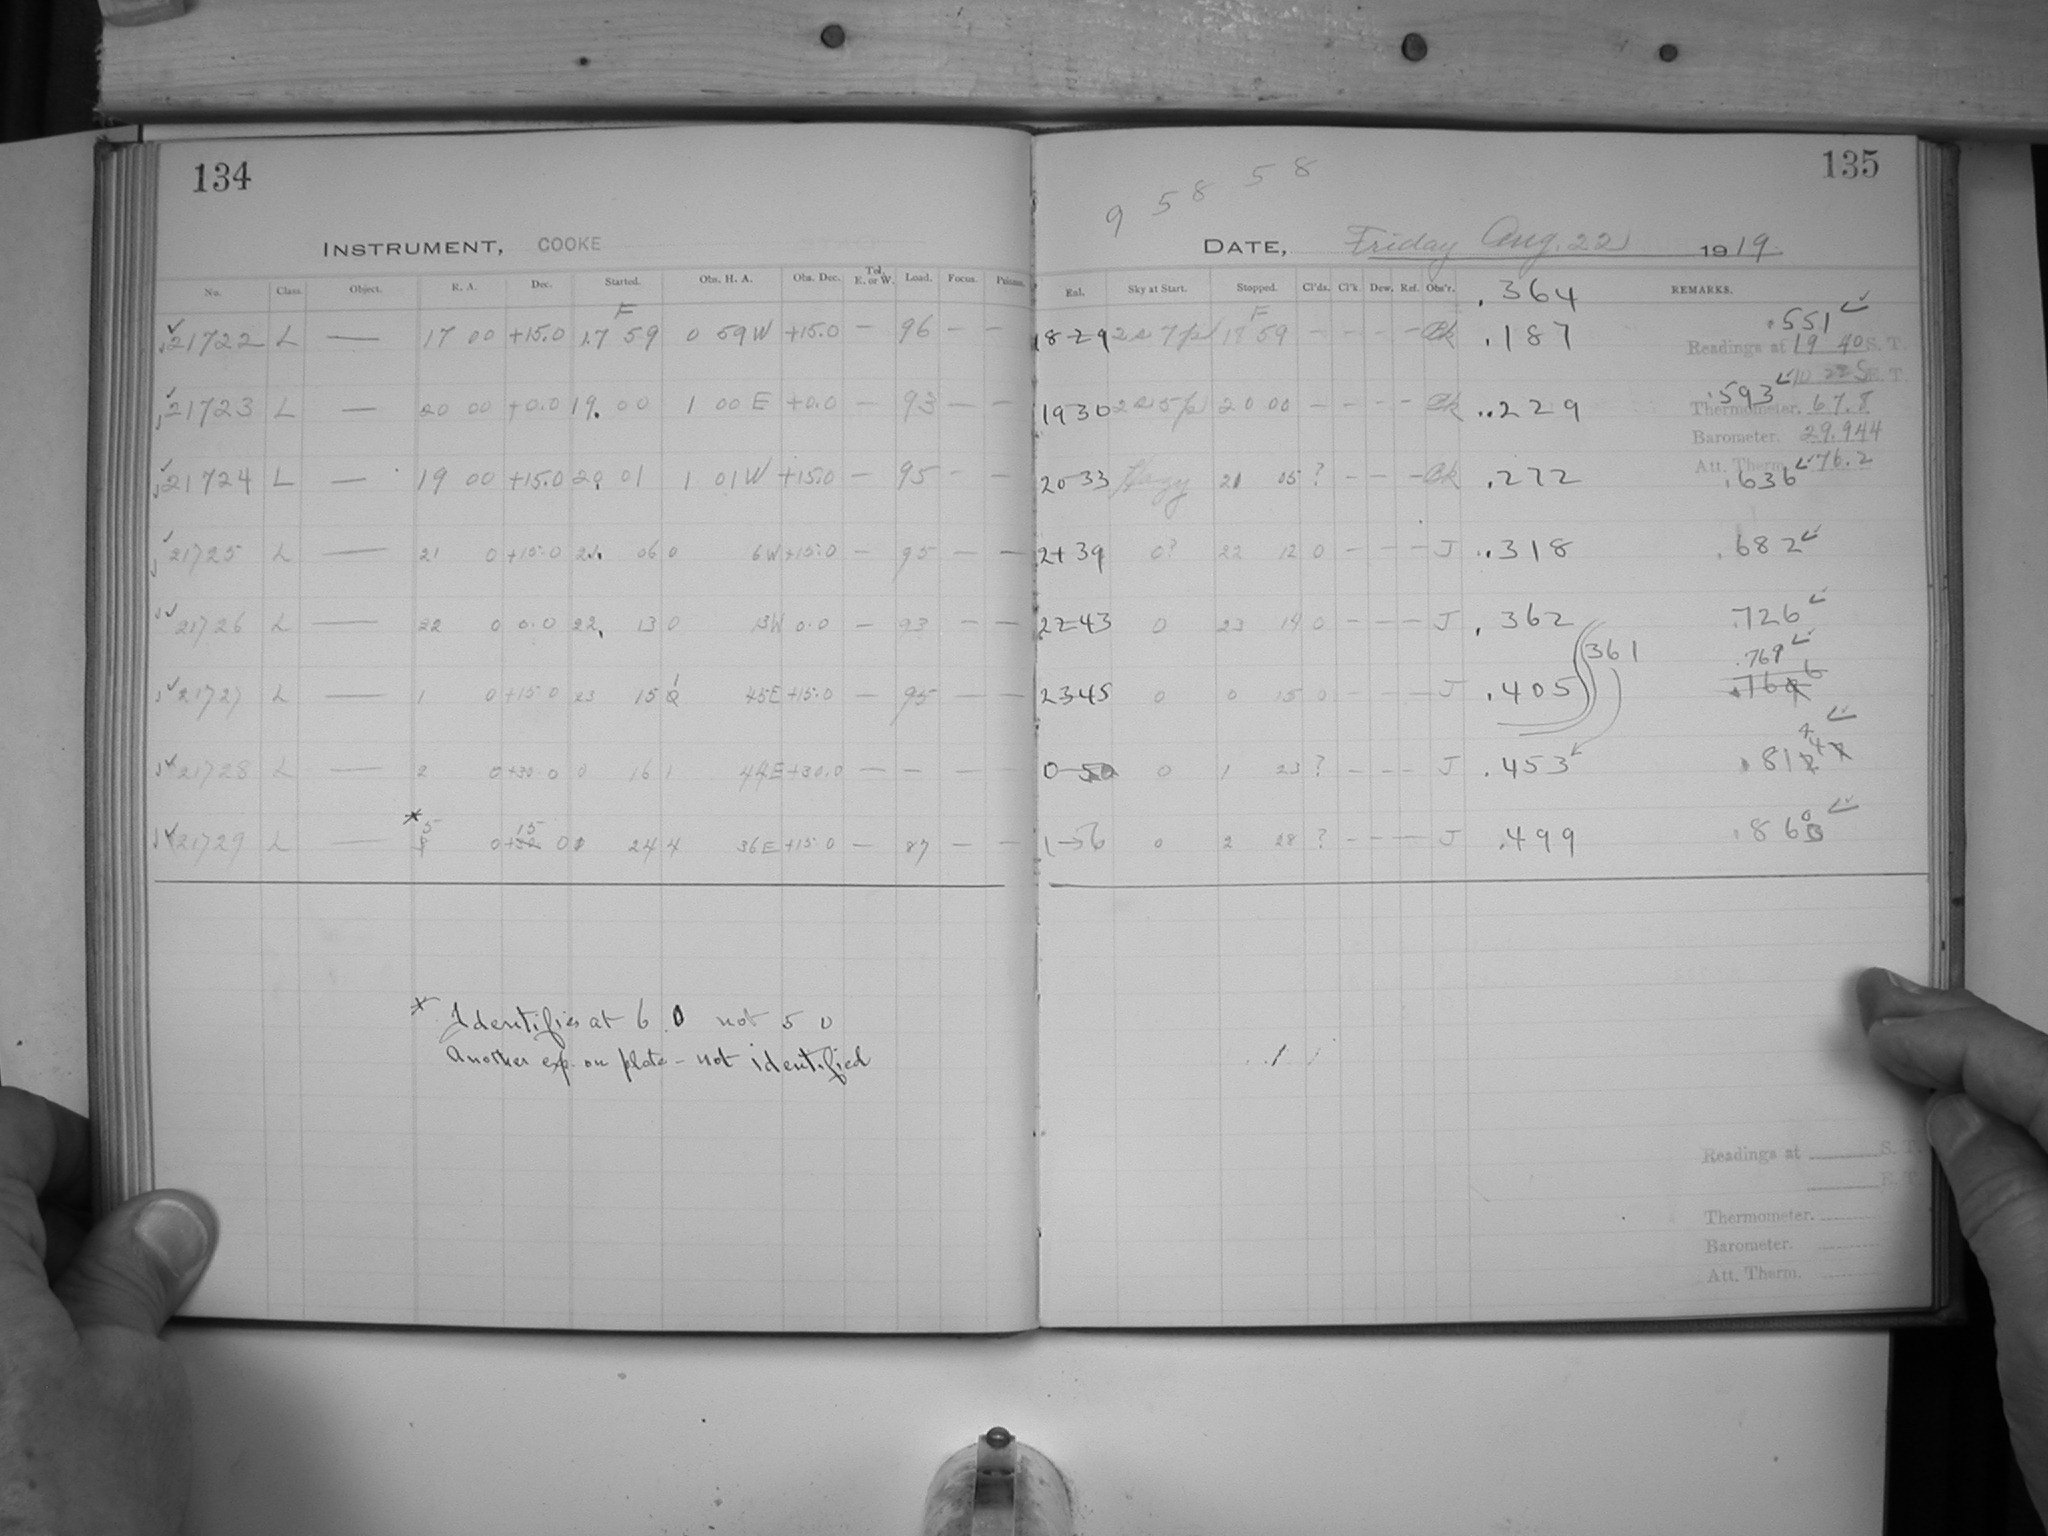 134
INSTRUMENT, COOKE
No. Class. Object. R. A. Dec. Started. Obs. H. A. Obs. Dec. Tel. E. or W. Load. Focus.
F
21722 L — 17 00 +15.0 17 59 0 59 W +15.0 — 96 — —
21723 L — 20 00 +0.0 19. 00 1 00 E +0.0 — 93 — —
21724 L — 19 00 +15.0 20. 01 1 01 W +15.0 — 95 - -
21725 L — 21 0 +15.0 21. 06 0 6 W +15.0 — 95 — —
21726 L — 22 0 0.0 22. 13 0 13 W 0.0 — 93 — —
21727 L — 1 0 +15.0 23 15 1 45 E +15.0 — 95 — —
21728 L — 2 0 +30.0 0 16 1 44 E +30.0 — — — —
21729 L — 5 0 +15 0 1 24 4 36 E +15.0 — 87 — —
* Identifies at 6 0 not 5 0
Another exp. on plate - not identified
135
9 58 58
DATE, Friday Aug. 22 1919
Enl. Sky at Start. Stopped. Cl'ds. Cl'k. Dew. Ref. Obs'r. REMARKS.
.364
F
18 29 18 59 - - - - .187 .551
Readings at 19 40 S. T.
10 22 S E. T.
19 30 20 00 - - - - ..229 .593
Thermometer. 67.8
Barometer. 29.944
Att. Therm. 76.2
20 33 Hazy 21 05 ? - - - .272 .636
21 39 0? 22 12 0 - - - J ..318 .682
22 43 0 23 14 0 - - - J .362 .726
361
.769
23 45 0 0 15 0 - - - J .405
0 50 0 1 23 ? - - - J .453 .814
1 56 0 2 28 ? - - - J .499 .860
Readings at S. T.
E. T.
Thermometer.
Barometer.
Att. Therm.